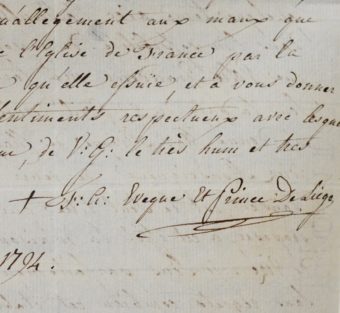 allégement aux maux que
l'Eglise de France par la
qu'elle essuie, et a vous donner
sentiments respectueux avec lesque
de V: G: le très hum et tres
+ Eveque Et Prince De Liege
1794.